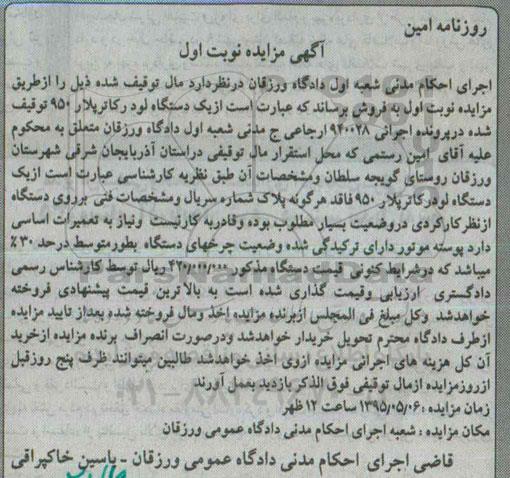 روزنامه امین
آگهی مزایده نوبت اول
اجرای احکام مدنی شعبه اول دادگاه ورزقان درنظردارد مال توقیف شده ذیل را ازطریق
مزایده نوبت اول به فروش برساند که عبارت است ازیک دستگاه لودر رکاترپلار ۹۵۰ توقیف
شده درپرونده اجرائی ۹۴۰۰۲۸ ارجاعی ج مدنی شعبه اول دادگاه ورزقان متعلق به محکوم
علیه آقای امین رستمی که محل استقرار مال توقیفی دراستان آذربایجان شرقی شهرستان
ورزقان روستای گویجه سلطان ومشخصات آن طبق نظریه کارشناسی عبارت است ازیک
دستگاه لودرکاترپلار ۹۵۰ فاقد هرگونه پلاک شماره سریال ومشخصات فنی برروی دستگاه
ازنظرکارکردی دروضعیت بسیار نامطلوب بوده وقادربه کارنیست ونیاز به تعمیرات اساسی
دارد پوسته موتور دارای ترکیدگی شده وضعیت چرخهای دستگاه بطورمتوسط درحد ۳۰٪
میباشد که درشرایط کنونی قیمت دستگاه مذکور ریال توسط کارشناس رسمی
دادگستری ارزیابی وقیمت گذاری شده است به بالاترین قیمت پیشنهادی فروخته
خواهدشد وکل مبلغ فی المجلس ازبرنده مزایده اخذ ومال فروخته شده بعداز تایید مزایده
ازطرف دادگاه محترم تحویل خریدار خواهدشد ودرصورت انصراف برنده مزایده ازخرید
آن کل هزینه های اجرائی مزایده ازوی اخذ خواهدشد طالبین میتوانند ظرف پنج روزقبل
ازروزمزایده ازمال توقیفی فوق الذکر بازدید بعمل آورند
زمان مزایده : ۱۳۹۵/۰۵/۰۶ ساعت ۱۲ ظهر
مکان مزایده : شعبه اجرای احکام مدنی دادگاه عمومی ورزقان
قاضی اجرای احکام مدنی دادگاه عمومی ورزقان - یاسین خاکپراقی